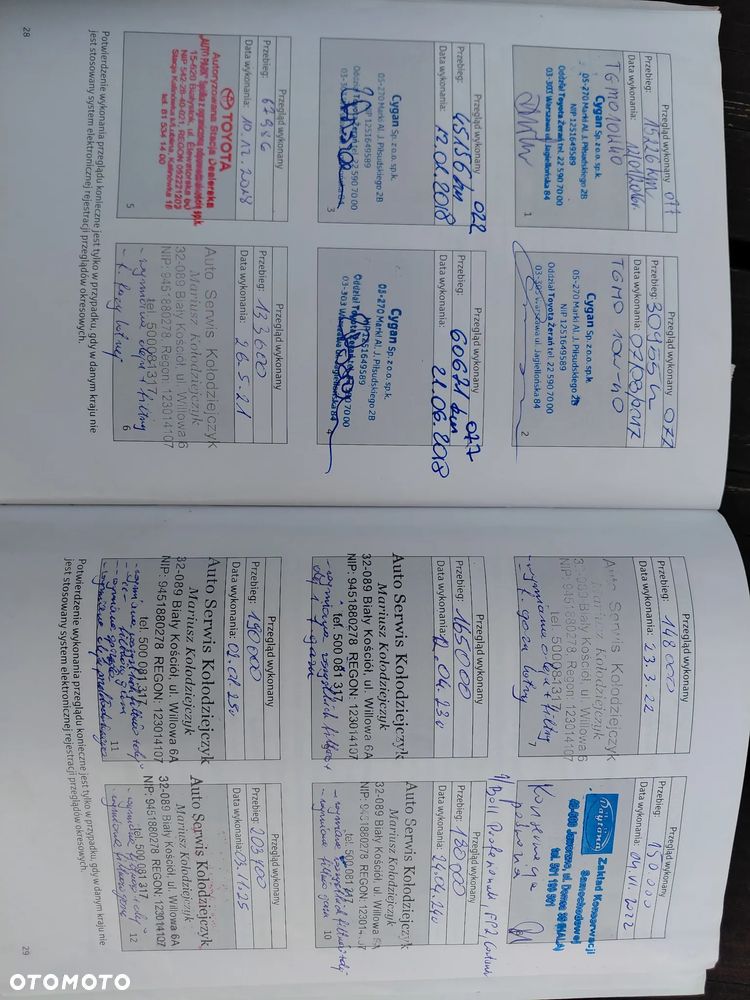 Przegląd wykonany 077
Przebieg: 15226 km
Data wykonania:
TGMO 10W40
Cygan Sp. z o.o. sp.k.
05-270 Marki Al. J. Piłsudskiego 2B
NIP 1251649589
Oddział Toyota Żerań tel. 22 590 70 00
03-303 Warszawa ul. Jagiellońska 84
1
Przegląd wykonany 077
Przebieg: 30955
Data wykonania:
TGMO 10W-40
Cygan Sp. z o.o. sp.k.
05-270 Marki Al. J. Piłsudskiego 2B
NIP 1251649589
Oddział Toyota Żerań tel. 22 590 70 00
03-303 Warszawa ul. Jagiellońska 84
2
Przegląd wykonany 022
Przebieg: 45156 km
Data wykonania: 12.01.2018
Cygan Sp. z o.o. sp.k.
05-270 Marki Al. J. Piłsudskiego 2B
NIP 1251649589
Oddział Toyota Żerań tel. 22 590 70 00
03-303 Warszawa ul. Jagiellońska 84
3
Przegląd wykonany 077
Przebieg: 60671 km
Data wykonania: 21.06.2018
Cygan Sp. z o.o. sp.k.
05-270 Marki Al. J. Piłsudskiego 2B
NIP 1251649589
Oddział Toyota Żerań tel. 22 590 70 00
03-303 Warszawa ul. Jagiellońska 84
4
Przegląd wykonany
Przebieg: 67986
Data wykonania: 10.12.2018
TOYOTA
Autoryzowana Stacja Dealerska
"AUTO PARK" Spółka z ograniczoną odpowiedzialnością sp.k.
15-620 Białystok, ul. Elewatorska 60
NIP 542-28-40-021, REGON 052221202
Stacja Kalinówka k/Lublina, Kalinówka 18
tel. 81 534 14 00
5
Przegląd wykonany
Przebieg: 133600
Data wykonania: 26.5.21
Auto Serwis Kołodziejczyk
Mariusz Kołodziejczyk
32-089 Biały Kościół, ul. Willowa 6
NIP: 9451880278, Regon: 123014107
tel. 500081317
- wymiana oleju + filtry
6
Potwierdzenie wykonania przeglądu konieczne jest tylko w przypadku, gdy w danym kraju nie
jest stosowany system elektronicznej rejestracji przeglądów okresowych.
28
Przegląd wykonany
Przebieg: 148000
Data wykonania: 23.3.22
Auto Serwis Kołodziejczyk
Mariusz Kołodziejczyk
32-089 Biały Kościół, ul. Willowa 6
NIP: 9451880278, Regon: 123014107
tel. 500081317
- wymiana oleju + filtry
7
Przegląd wykonany
Przebieg: 150 000
Data wykonania: 04 VI 2022
Zakład Konserwacji
Samochodowej
Konserwacja
podwozia
Przegląd wykonany
Przebieg: 165000
Data wykonania: 12.04.23r
Auto Serwis Kołodziejczyk
Mariusz Kołodziejczyk
32-089 Biały Kościół, ul. Willowa 6A
NIP: 9451880278 REGON: 123014107
tel. 500 081 317
- wymiana wszystkich filtrów +
olej i gazu
9
Przegląd wykonany
Przebieg: 180000
Data wykonania: 24.04.24r
Auto Serwis Kołodziejczyk
Mariusz Kołodziejczyk
32-089 Biały Kościół, ul. Willowa 6A
NIP: 9451880278 REGON: 123014107
tel. 500 081 317
- wymiana wszystkich filtrów + olej
- wymiana filtrów gazu
10
Przegląd wykonany
Przebieg: 190000
Auto Serwis Kołodziejczyk
Mariusz Kołodziejczyk
32-089 Biały Kościół, ul. Willowa 6A
NIP: 9451880278 REGON: 123014107
tel. 500 081 317
11
Przegląd wykonany
Przebieg: 203400
Data wykonania: 03.11.25
Auto Serwis Kołodziejczyk
Mariusz Kołodziejczyk
32-089 Biały Kościół, ul. Willowa 6A
NIP: 9451880278 REGON: 123014107
tel. 500 081 317
12
Potwierdzenie wykonania przeglądu konieczne jest tylko w przypadku, gdy w danym kraju nie
jest stosowany system elektronicznej rejestracji przeglądów okresowych.
29
OTOMOTO